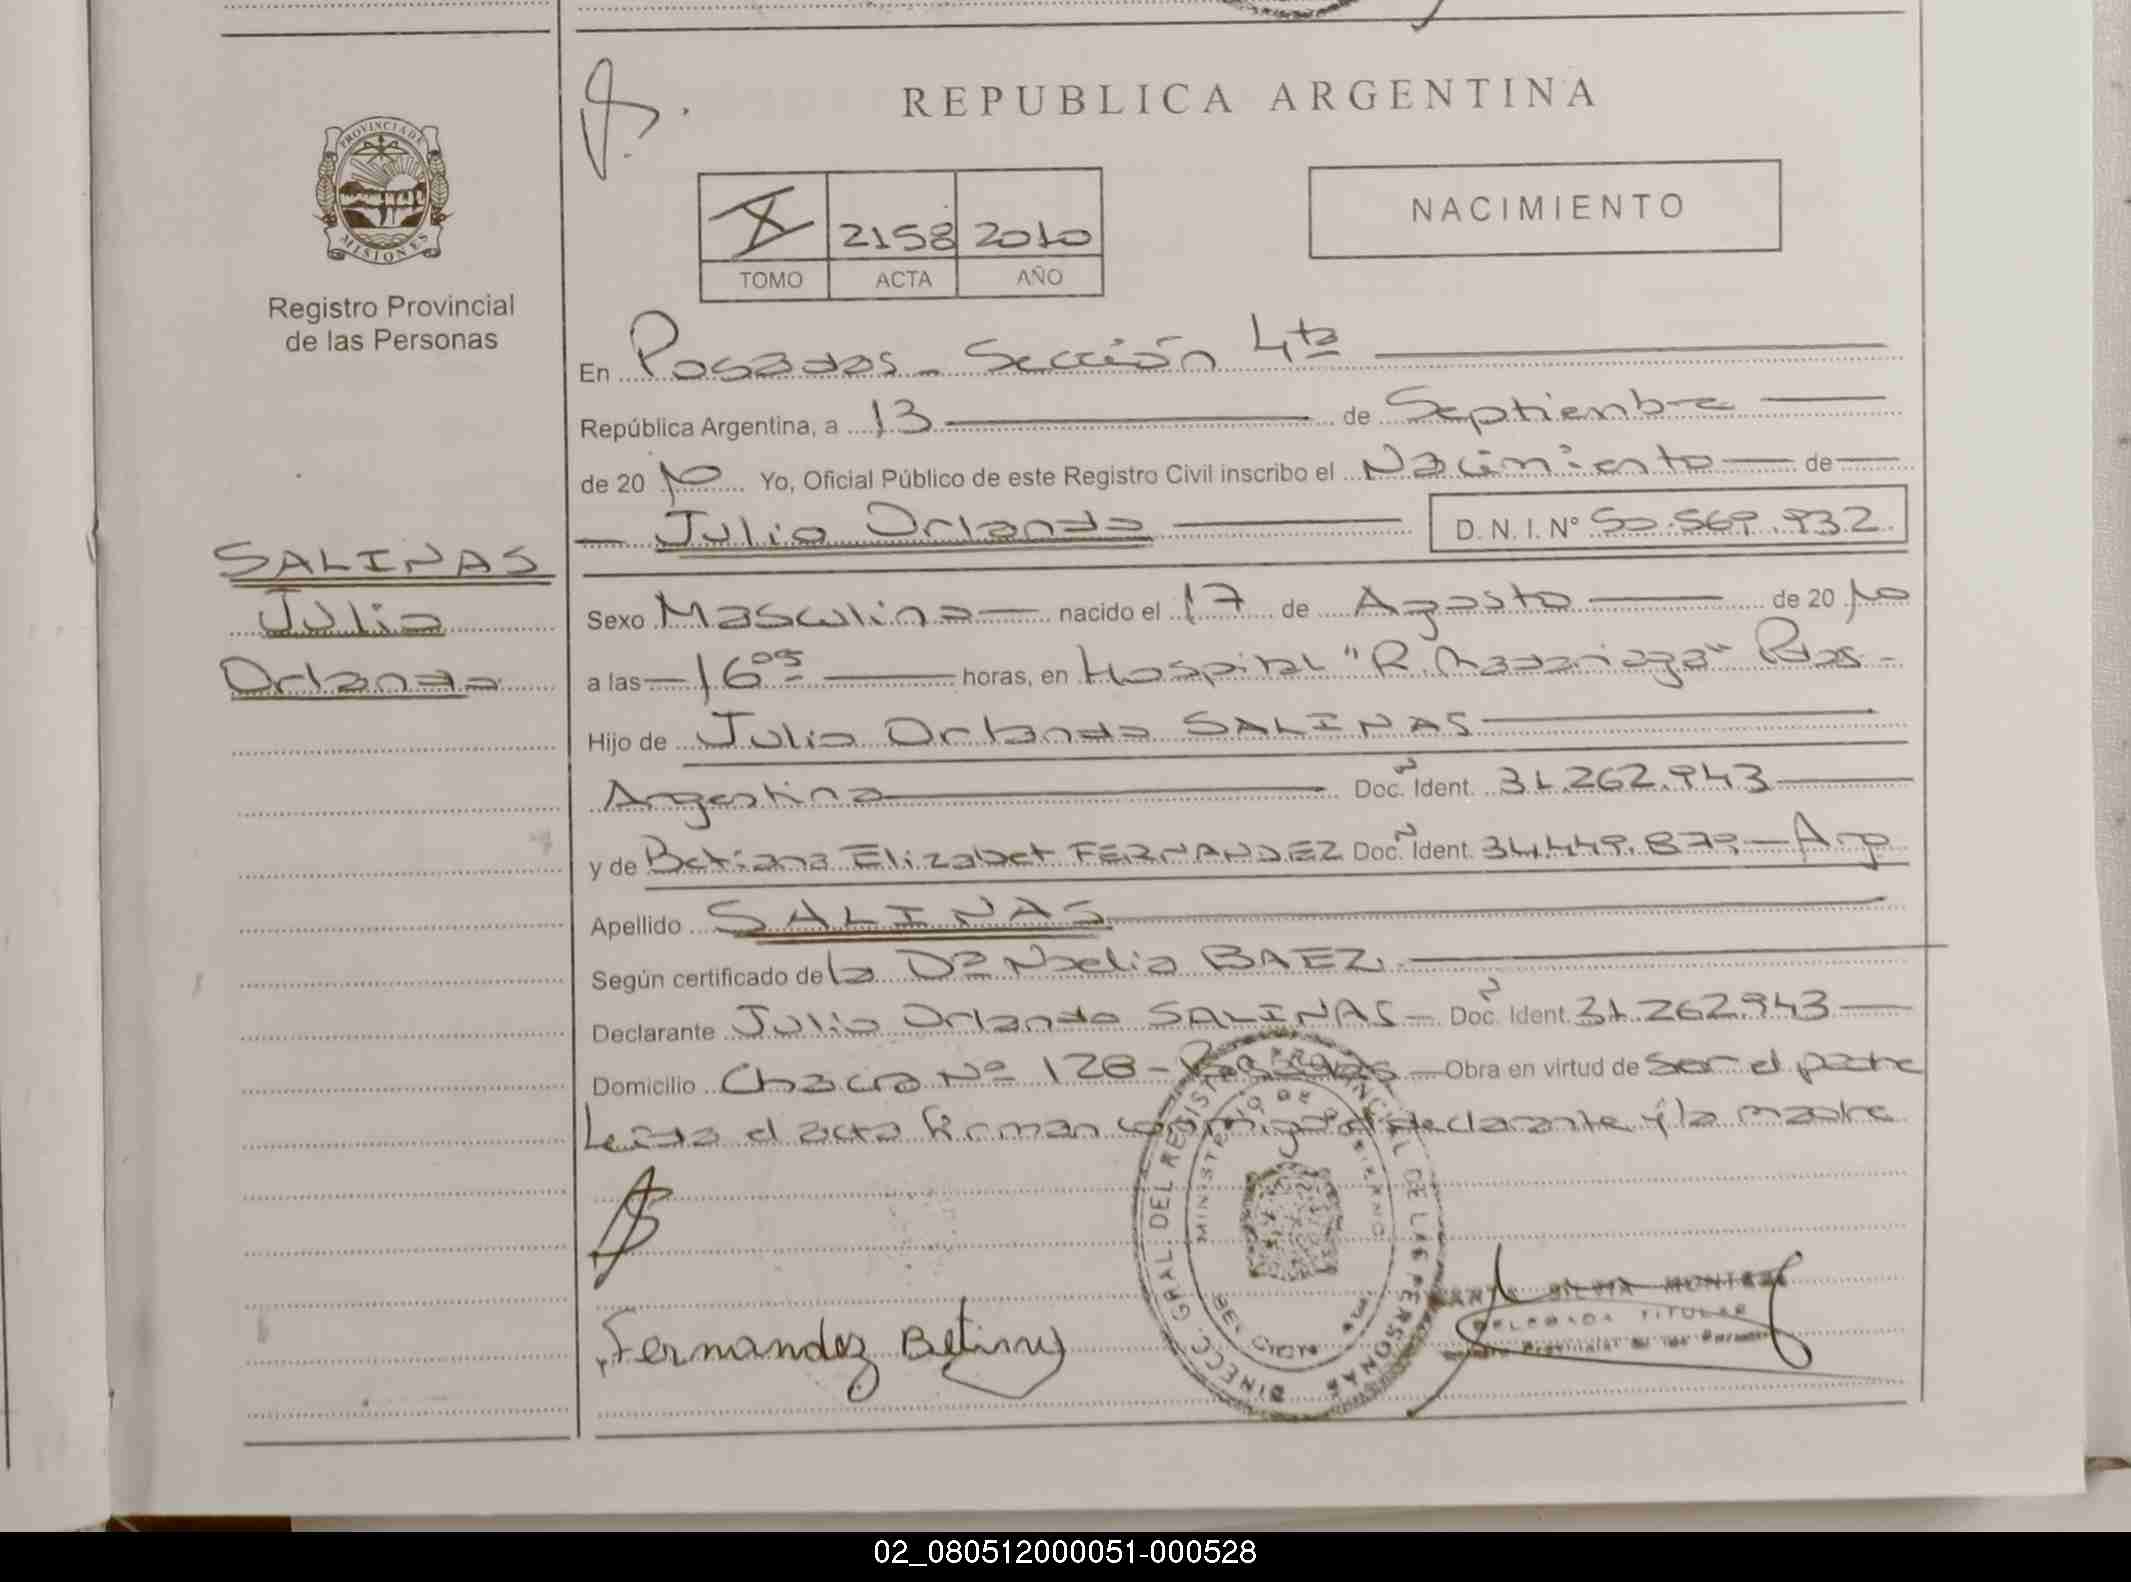 REPUBLICA ARGENTINA
PROVINCIA DE
MISIONES
Registro Provincial
de las Personas
X 2158 2010
TOMO ACTA AÑO
NACIMIENTO
En Posadas - Sección 4ta
República Argentina, a 13 de Septiembre
de 20 10 Yo, Oficial Público de este Registro Civil inscribo el Nacimiento de
Julio Orlando D. N. I. Nº 50.569.932
SALINAS
Julio
Orlando
Sexo Masculino nacido el 17 de Agosto de 20 10
a las 16 05 horas, en Hospital "R. Madariaga" Pdas -
Hijo de Julio Orlando SALINAS
Argentino Doc. Ident. 31.262.943
y de Betiana Elizabet FERNANDEZ Doc. Ident. 34.449.879 - Arg
Apellido SALINAS
Según certificado de la Dra Noelia BAEZ.
Declarante Julio Orlando SALINAS - Doc. Ident. 31.262.943
Domicilio Chacra Nº 128 - Posadas - Obra en virtud de ser el padre
Leída el acta firman conmigo el declarante y la madre
DIRECC. GRAL. DEL REGISTRO PROVINCIAL DE LAS PERSONAS
MINISTERIO DE GOBIERNO
Fernandez Betiana
SILVIA
DELEGADA TITULAR
Registro Provincial de las Personas
02_080512000051-000528